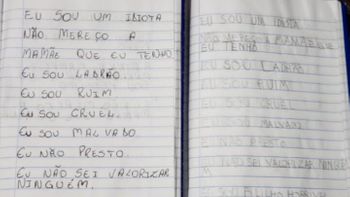 EU SOU UM IDIOTA
NÃO MEREÇO A
MAMÃE QUE EU TENHO
EU SOU LADRÃO.
EU SOU RUIM
EU SOU CRUEL.
EU SOU MALVADO
EU NÃO PRESTO.
EU NÃO SEI VALORIZAR
NINGUÉM.
EU SOU UM IDIOTA
NÃO MEREÇO A MAMÃE QUE
EU TENHO
EU SOU LADRÃO
EU SOU RUIM
EU SOU CRUEL
EU SOU MALVADO
EU NÃO PRESTO
EU NÃO SEI VALORIZAR